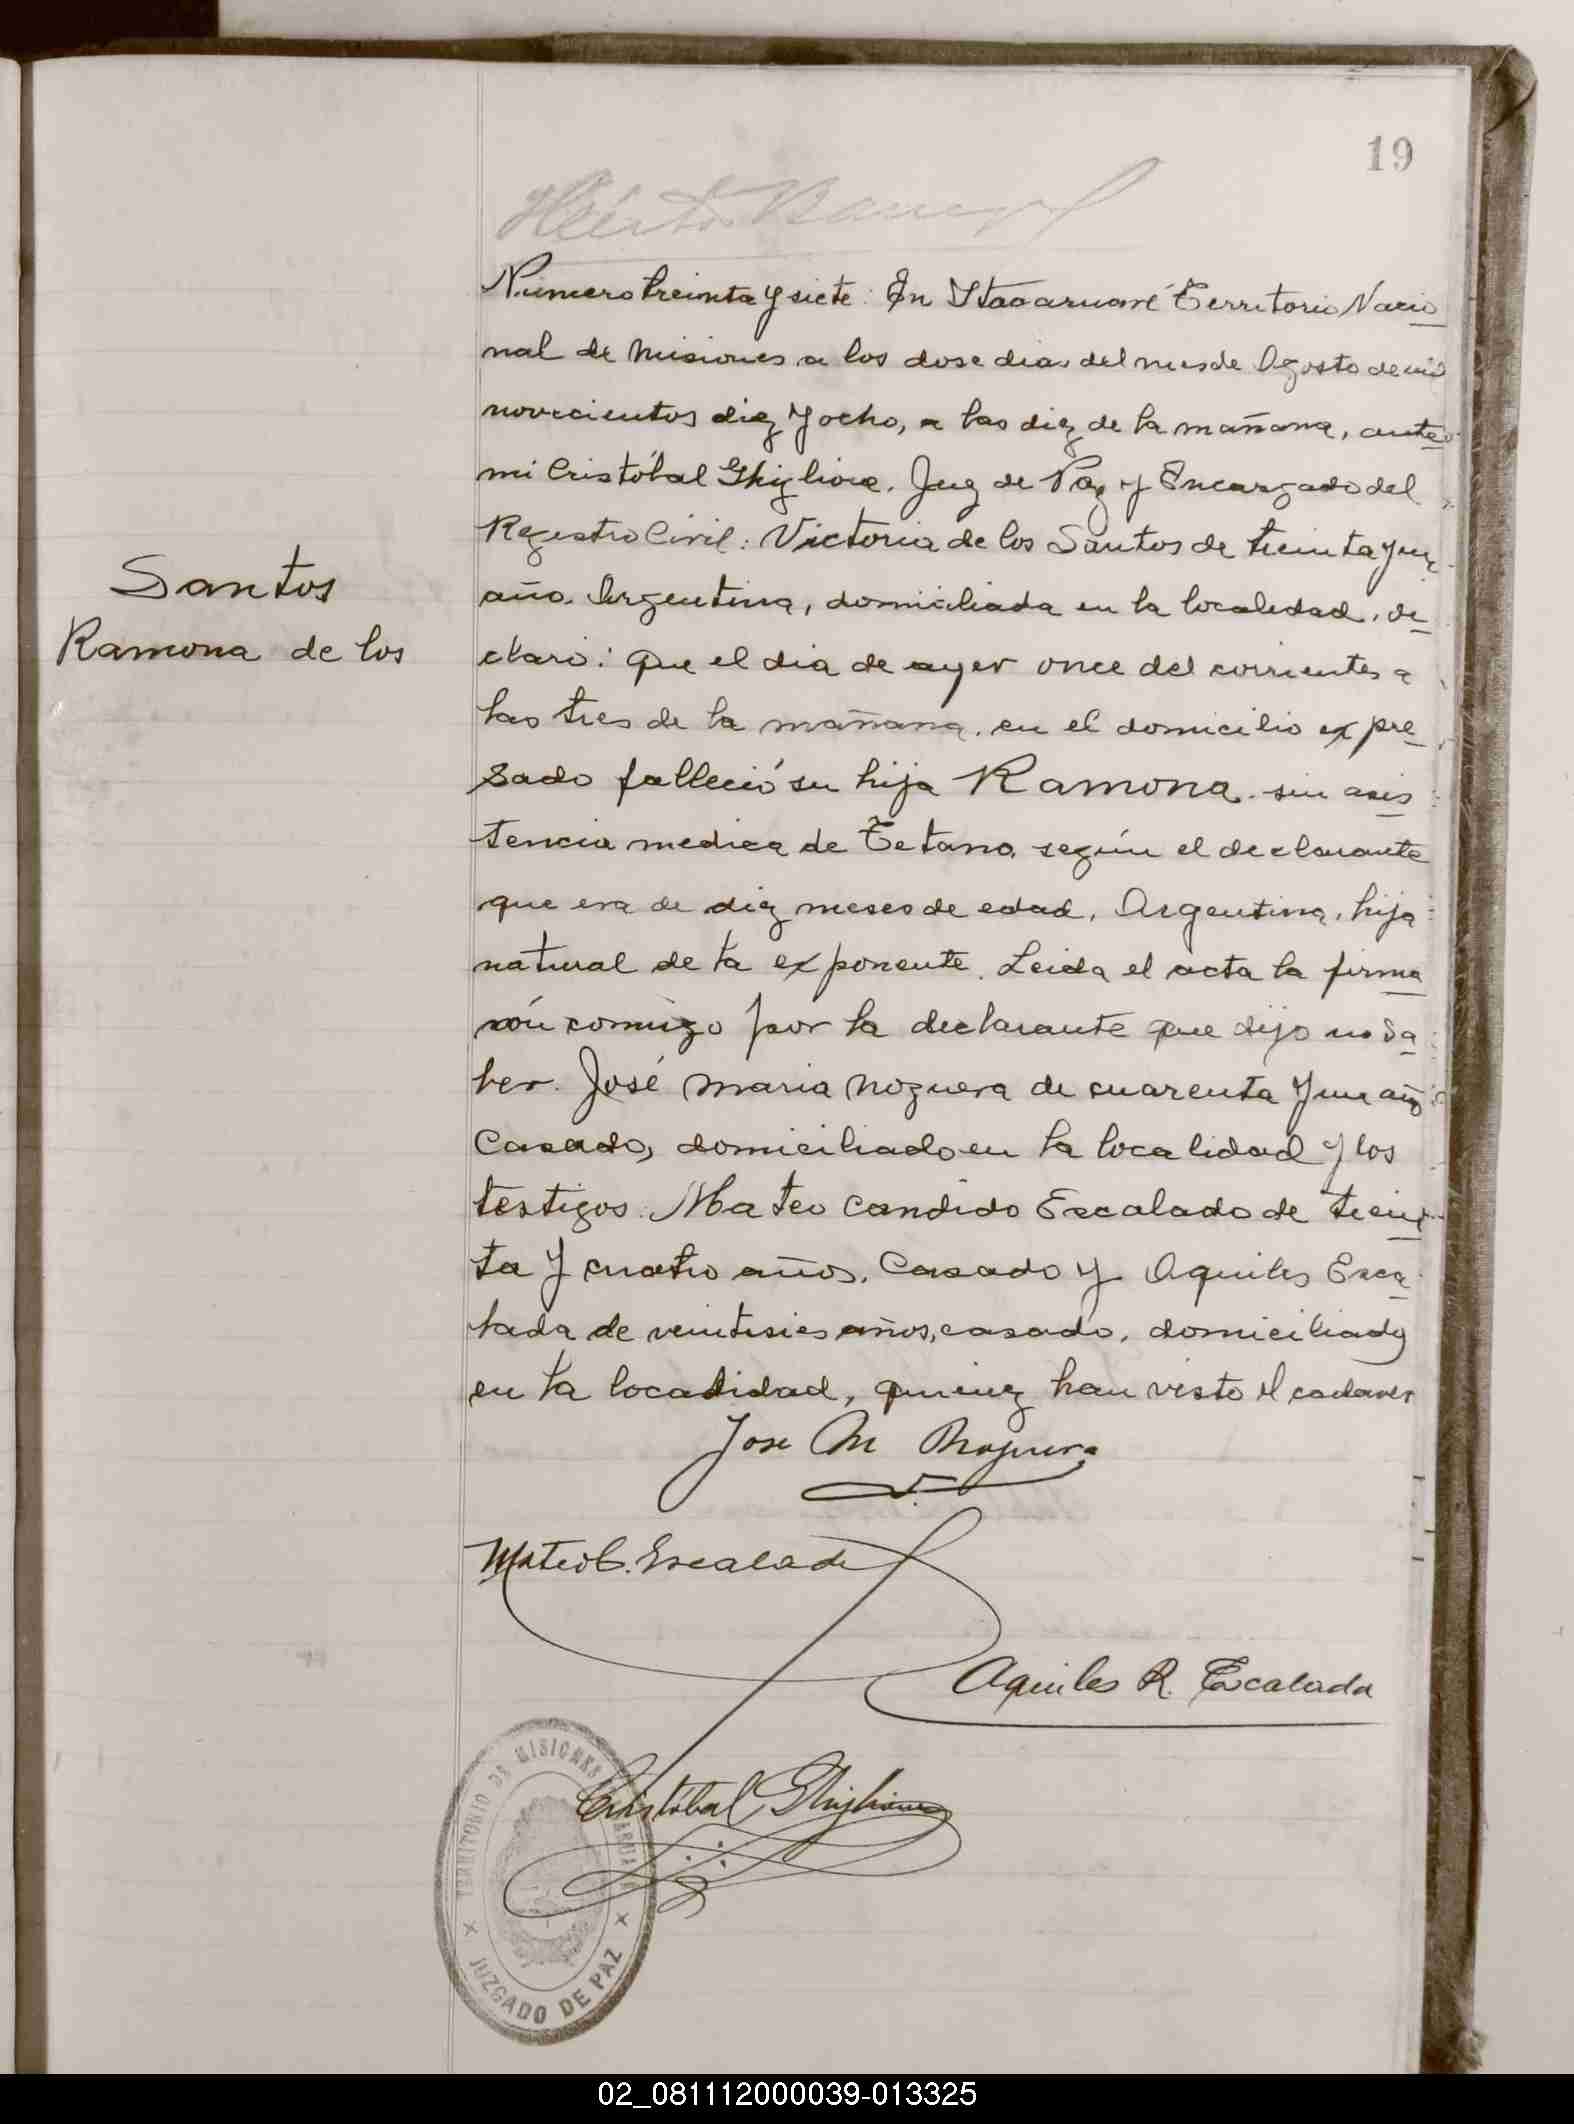 19
Numero treinta y siete: En Itacaruaré Territorio Nacio
nal de Misiones a los dose dias del mes de Agosto de mil
novecientos diez y ocho, a las diez de la mañana, ante
mi Cristóbal Ghiglione. Juez de Paz y Encargado del
Registro Civil: Victoria de los Santos de treinta y un
año. Argentina, domiciliada en la localidad, de
claró: que el dia de ayer once del corrientes a
las tres de la mañana, en el domicilio expre
sado falleció su hija Ramona. sin asis
tencia medica de Tetano, según el declarante
que era de diez meses de edad, Argentina, hija
natural de la exponente. Leida el acta la firma
rón comigo por la declarante que dijo no sa
ber. José Maria Noguera de cuarenta y un año
Casado, domiciliado en la localidad y los
testigos. Mateo Candido Escalado de trein
ta y cuatro años, Casado y Aquiles Esca
lada de veintiseis años, casado, domiciliados
en la localidad, quienez han visto el cadaver
Santos
Ramona de los
Jose M Noguera
Mateo C. Escalada
Aquiles R. Escalada
Cristóbal Ghiglione
TERRITORIO DE MISIONES
JUZGADO DE PAZ
02_081112000039-013325